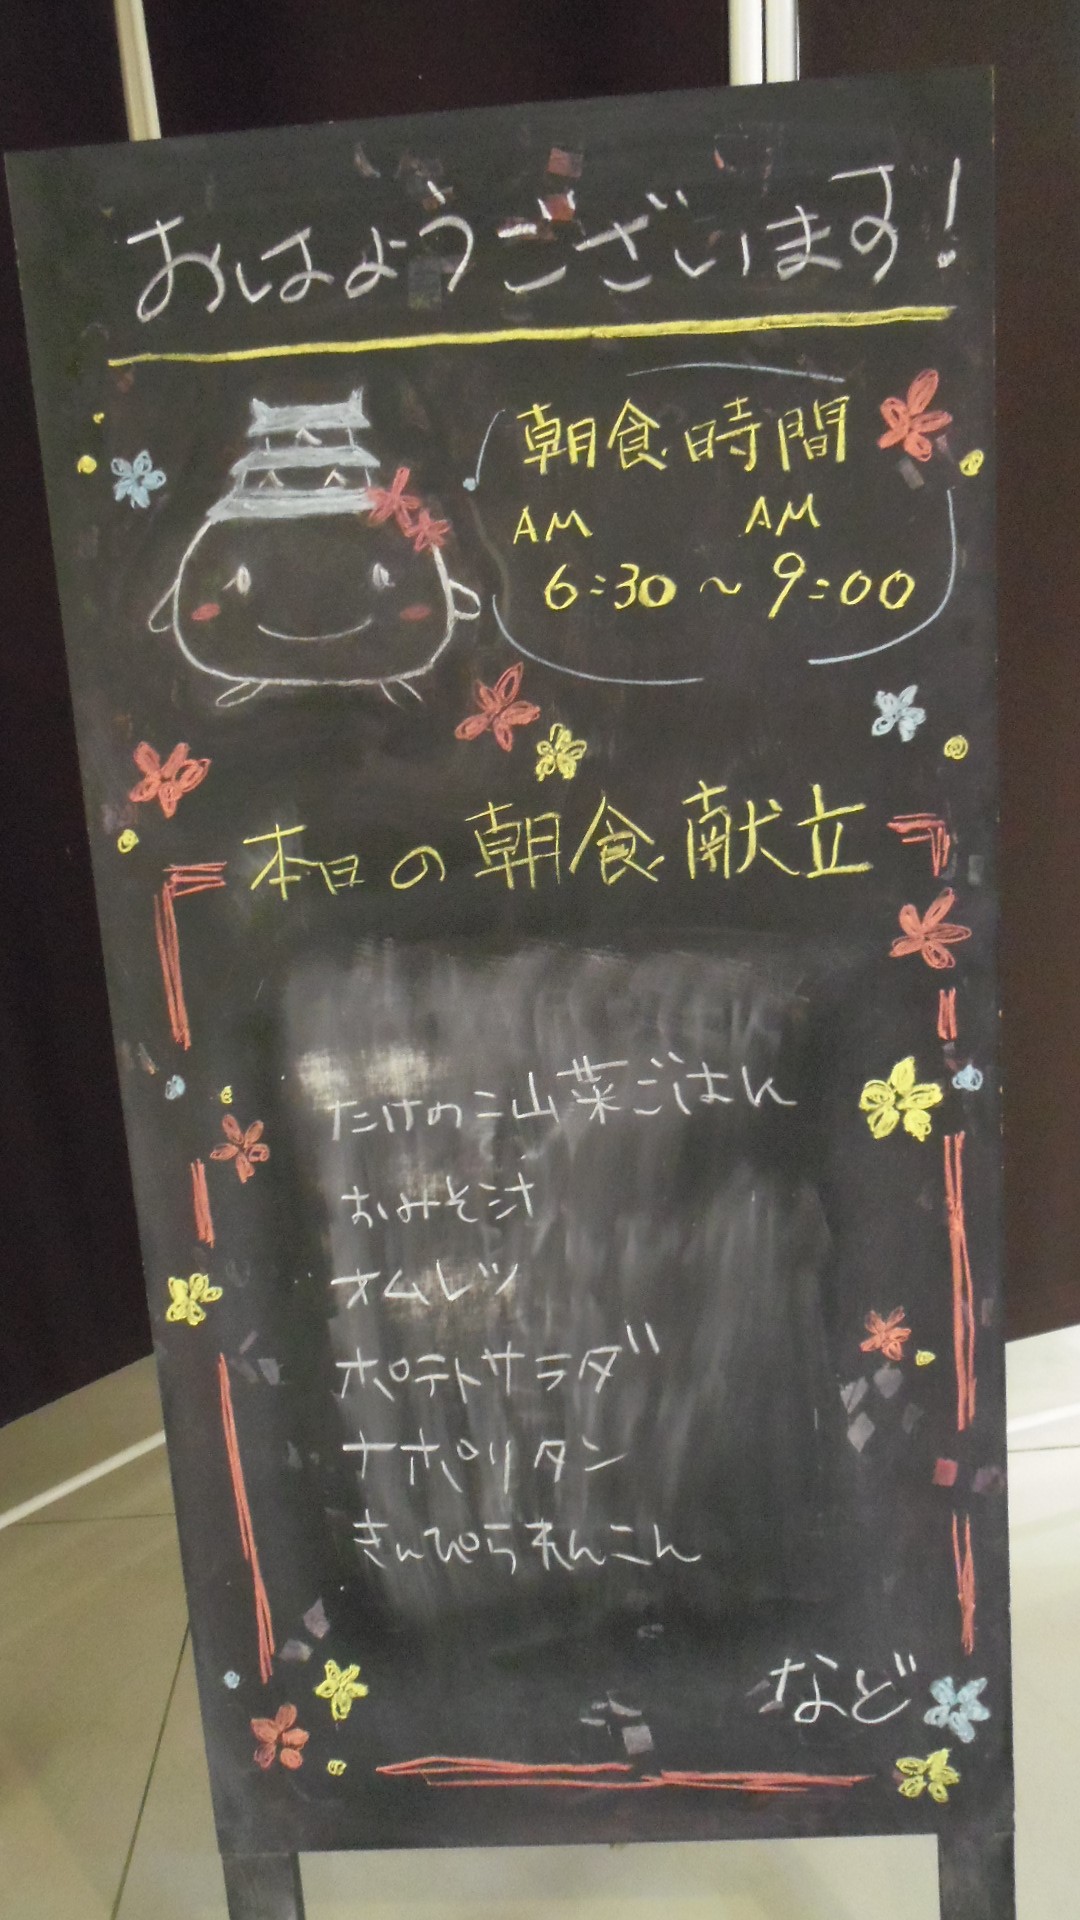 おはようございます!
朝食時間
AM AM
6:30〜9:00
本日の朝食献立
たけのこ山菜ごはん
おみそ汁
オムレツ
ポテトサラダ
ナポリタン
きんぴられんこん
など